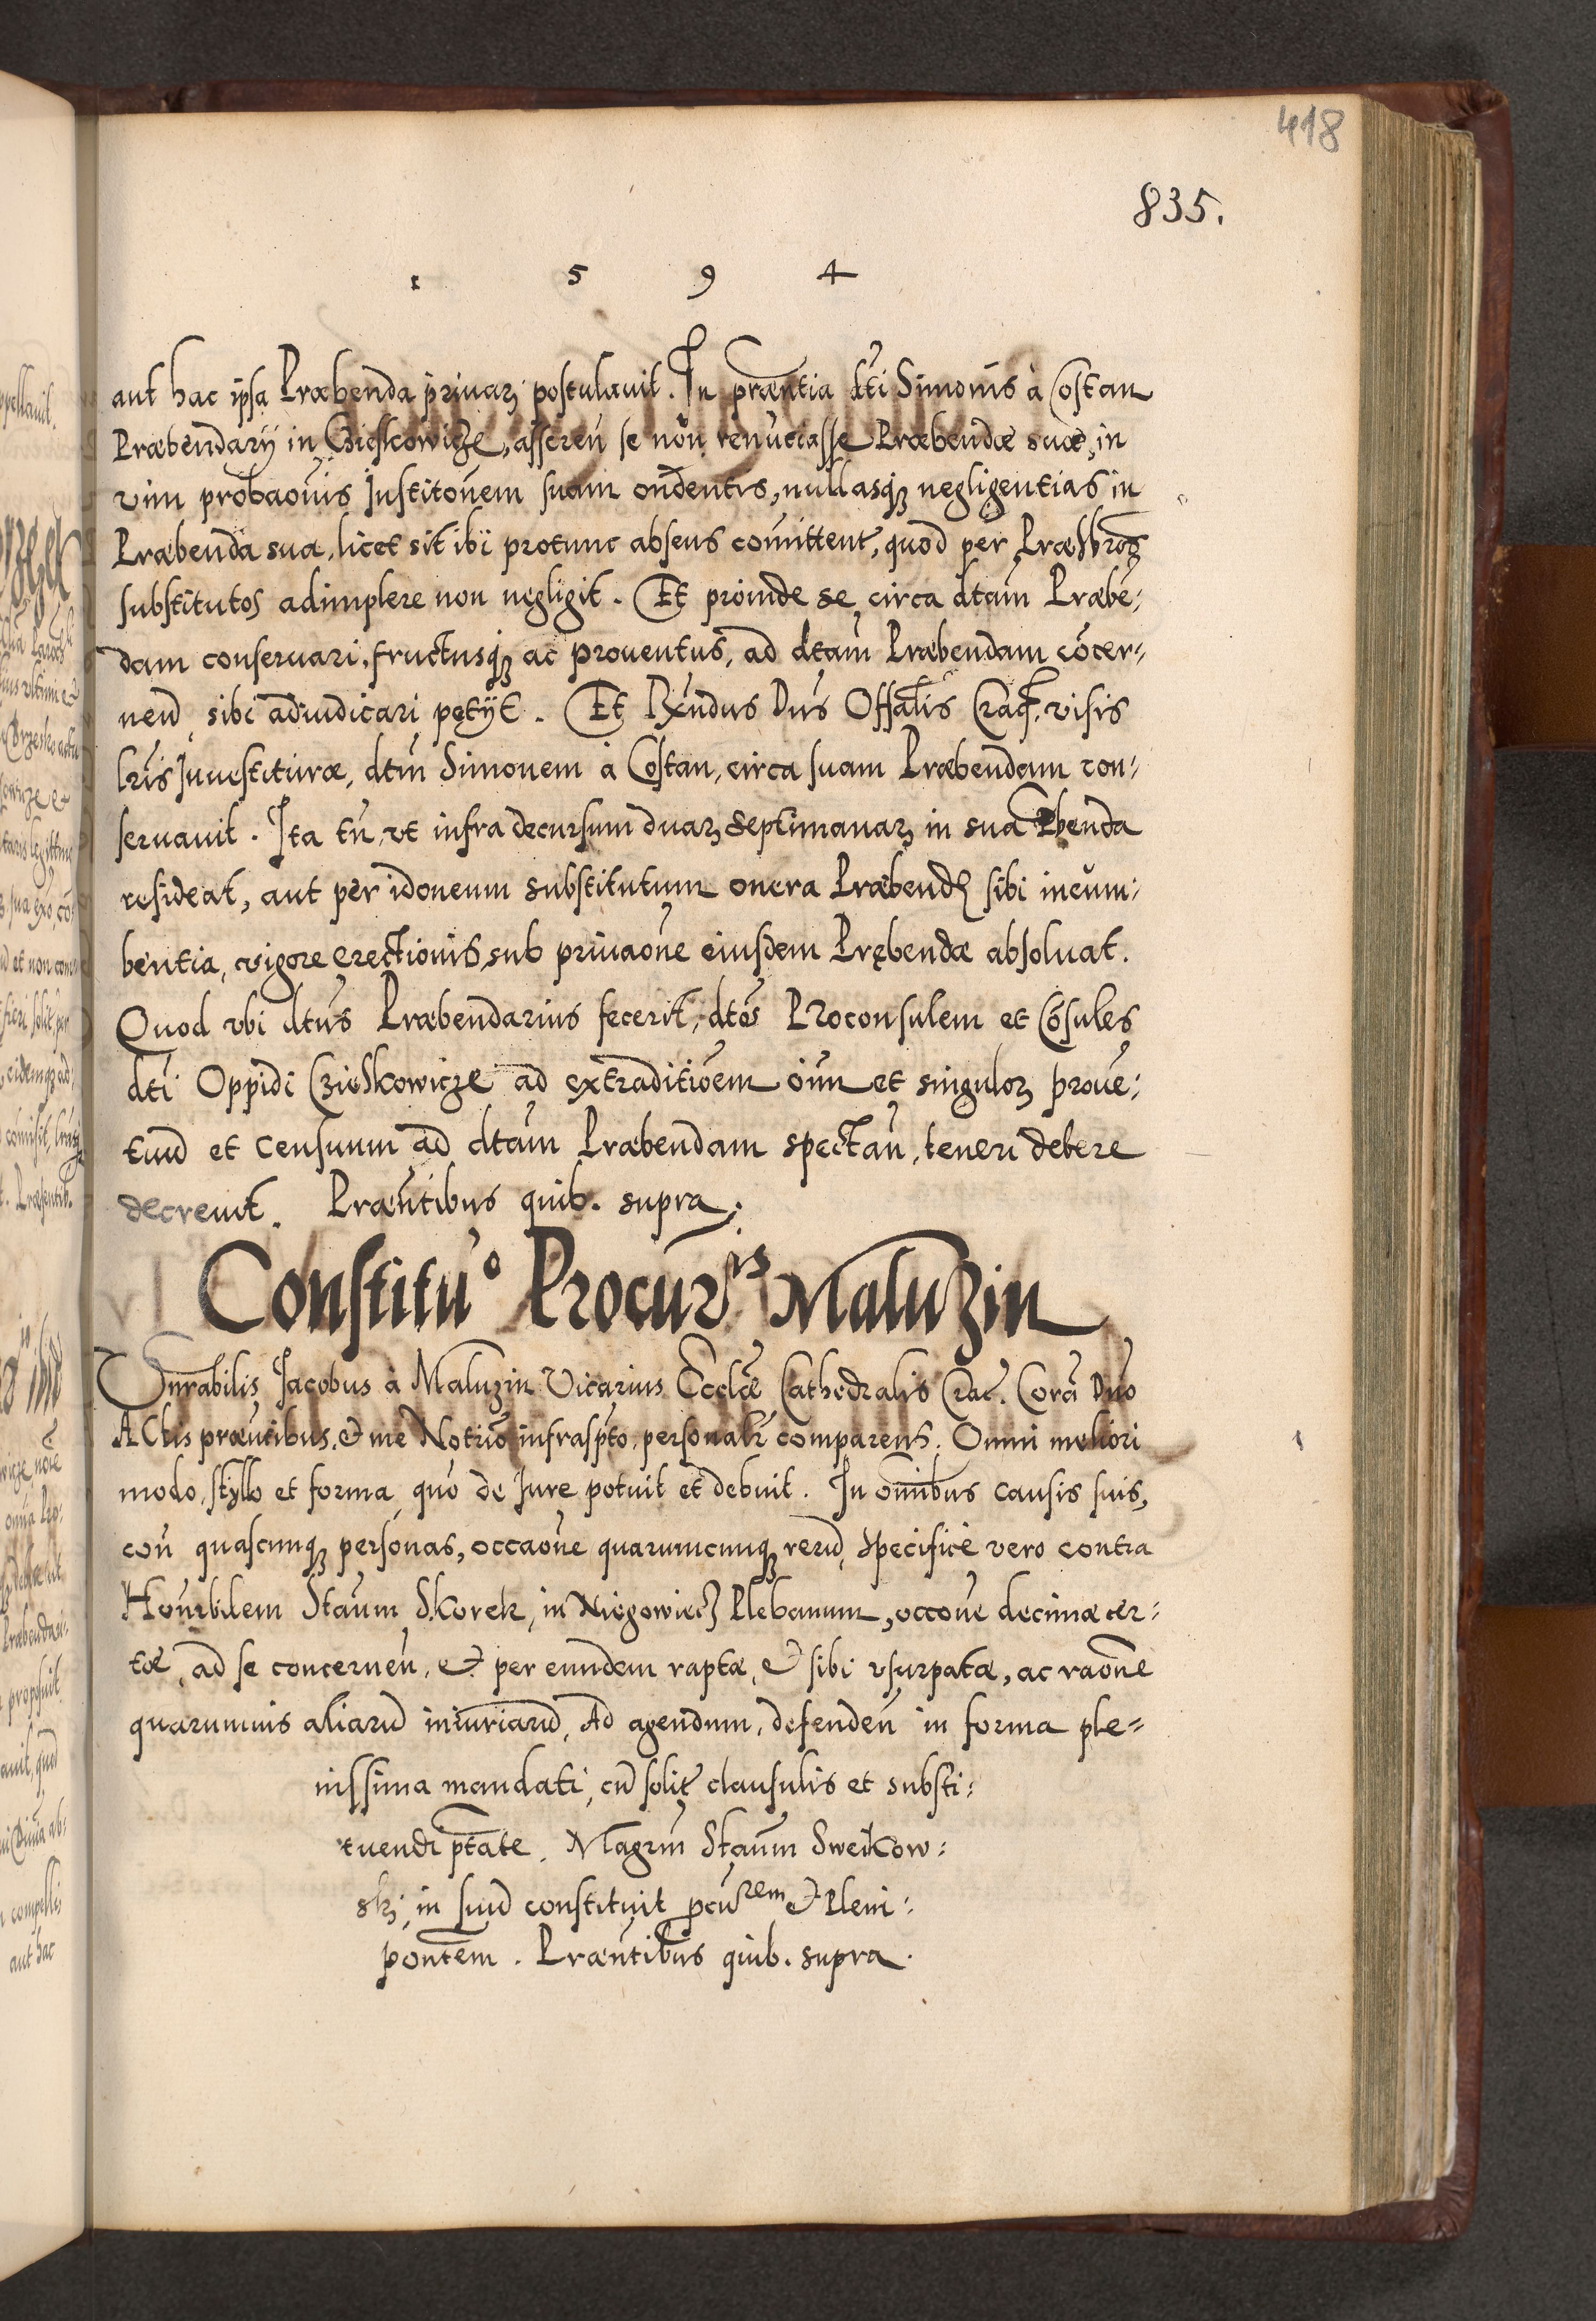 418
835.
1 5 9 4
aut hac ipsa Præbenda privarj postulavit. In præntia dti Simonis à Costan
Præbendarÿ in Czieskowicze, asseren se non renuciasse Præbendæ suæ, in
vim probaonis Institonem suam ondentis, nullasq negligentias in
Præbenda sua, licet sit ibi protunc absens comittent, quod per Præsbros
substitutos adimplere non negligit. Et proinde se circa dtam Præbe:
dam conservari, fructusq ac proventus, ad dtam Præbendam cocer:
nen sibi adiudicari petÿt. Et Rndus Dus Offalis Crac. visis
lris Investituræ, dtm Simonem à Costan, circa suam Præbendam con:
servavit. Ita tn, vt infra decursum duar Septimanar in sua Pbenda
resideat, aut per idoneum substitutum onera Præbendæ sibi incum:
bentia, vigore erectionis, sub privaone eiusdem Prębendæ absoluat.
Quod vbi dtus Præbendarius fecerit, dtos Proconsulem et Cosules
dti Oppidi Czieskowicze ad extraditioem oim et singulor prove:
tuu et censuum ad dtam Præbendam spectan, teneri debere
decrevit. Præntibus quib. supra.
Constituo Procuris Maluzin
Vnrabilis Jacobus à Maluzin Vicarius Ecclæ Cathedralis Crac. Cora Dno
Actis præntibus, & me Notrio infraspto, personalr comparens. Omni meliori
modo, styllo et forma, quo de Jure potuit et debuit. In omnibus causis suis,
con quascunq personas, occaone quarumcunq reru, specifice vero contra
Honrbilem Staum Skorek, in Niegowiecz Plebanum, occone decimæ cer:
tæ, ad se concernen, & per eundem raptæ, & sibi vsurpatæ, ac raone
quarumvis aliaru iniuriaru, Ad agendum, defenden in forma ple:
nissima mandati, cu solit clausulis et substi:
tuendi ptate. Magrm Staum Sweikow:
skj, in suu constituit pcurem & Pleni:
pontem. Præntibus quib. supra.